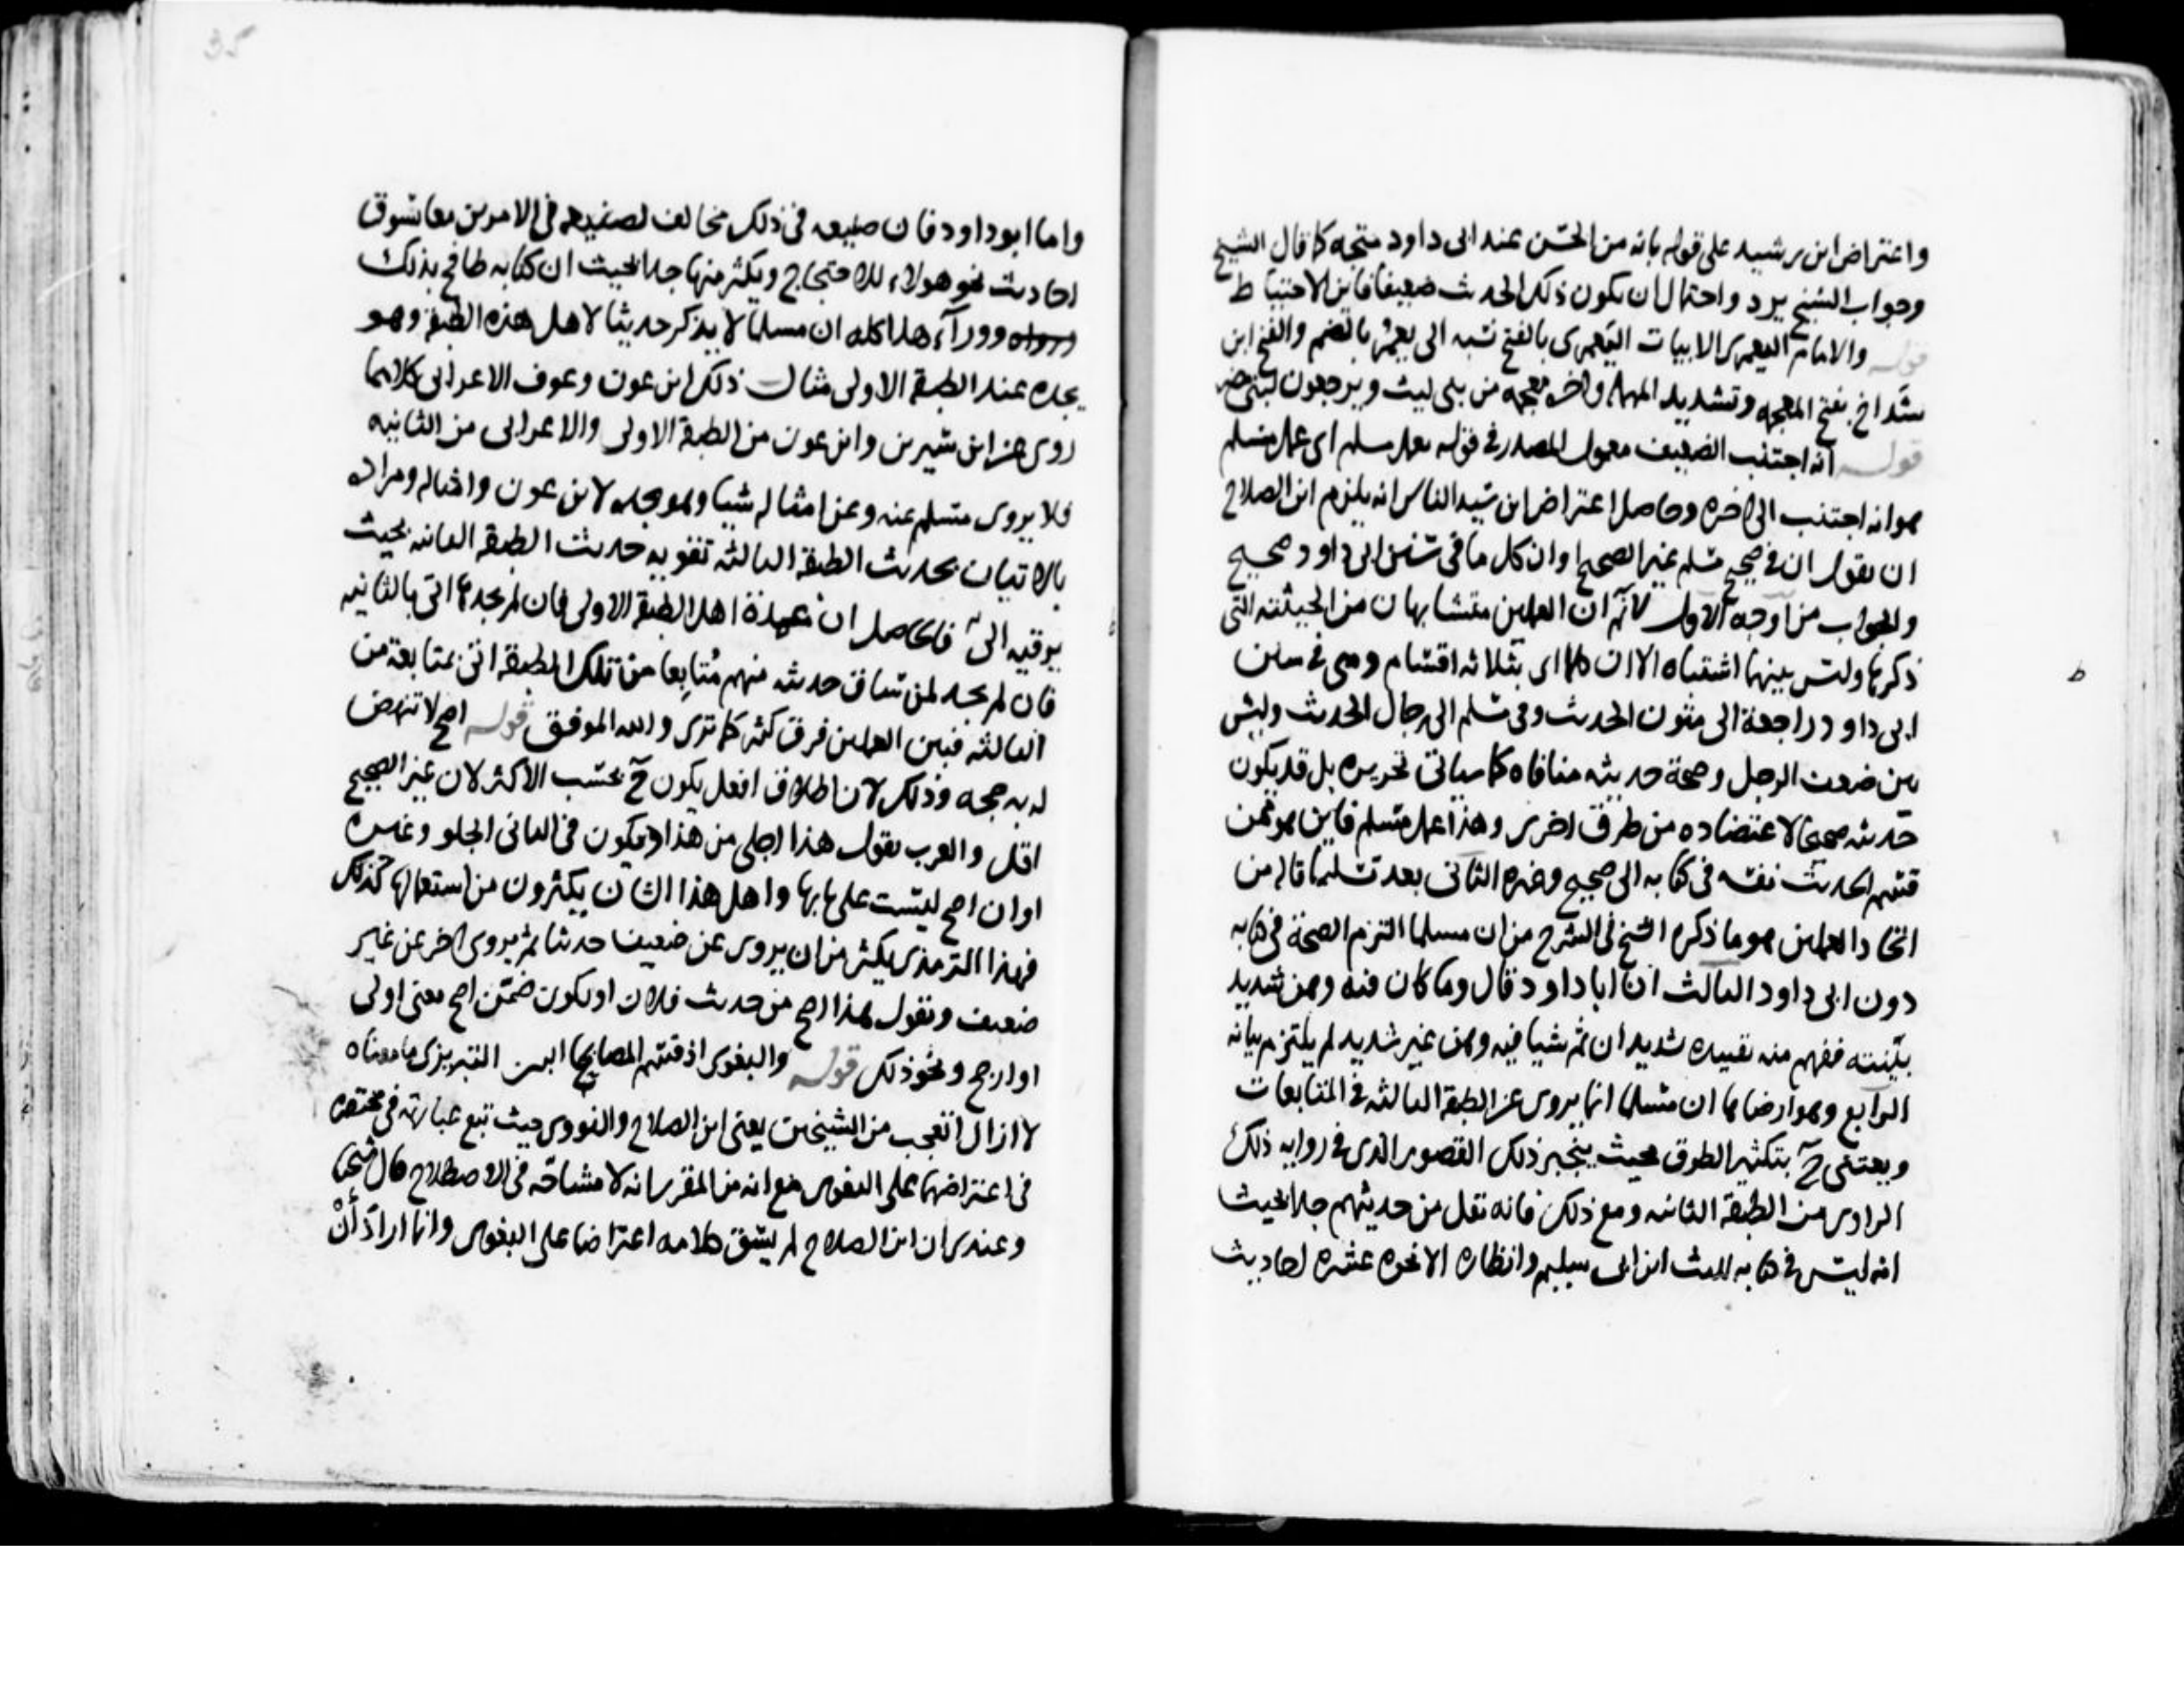 واعتراض ابن رشيد على قوله بانه من الحسن عند ابى داود متجه كما قال الشيخ
وجواب الشيخ يرد واحتمال ان يكون ذلك الحديث ضعيفا فاين الاحتياط
قوله والامام اليعمرى الابيات اليعمرى بالفتح نسبه الى يعمر بالضم والفتح ابن
شداخ بفتح المعجمه وتشديد المهمله واخره معجمه من بنى ليث ويرجعون
قوله انه اجتنب الضعيف معمول المصدر فى قوله بعمل مسلم اى عمل مسلم
هو انه اجتنب الى اخره وحاصل اعتراض ابن سيد الناس انه يلزم ابن الصلاح
ان يقول ان فى صحيح مسلم غير الصحيح او ان كل ما فى سنن ابى داود صحيح
والجواب من اوجه الاول لا نم ان العملين متشابهان من الحيثيه التى
ذكرها وليس بينهما اشتباه الا ان كلا اى بثلاثه اقسام وهى فى سنن
ابى داود راجعة الى متون الحديث وفى مسلم الى رجال الحديث وليس
بين ضعف الرجل وصحة حديثه منافاه كما سياتى تحريره بل قد يكون
حديثه صحيحا لاعتضاده من طرق اخرى وهذا عمل مسلم فاين هو ممن
قسم الحديث نفسه فى كتابه الى صحيح وغيره الثانى بعد تسليم ما قاله من
اتحاد العملين هو ما ذكره الشيخ فى الشرح من ان مسلما التزم الصحة فى كتابه
دون ابى داود الثالث ان ابا داود قال وما كان فيه وهن شديد
بينته ففهم منه تقييده شديد ان ثم شيا فيه وهن غير شديد لم يلتزم بيانه
الرابع وهو ارضاها ان مسلما انما يروى عن الطبقة الثالثه فى المتابعات
ويعتنى ح بتكثير الطرق بحيث ينجبر ذلك القصور الذى فى روايه ذلك
الراوى من الطبقه الثانيه ومع ذلك فانه نقل من حديثهم جدا بحيث
انه ليس فى كتابه لليث ابن ابى سليم وانظاره الا نحو عشره احاديث
35
واما ابو داود فان صنيعه فى ذلك مخالف لصنيعه فى الامرين معا يسوق
احاديث نحو هولاء للاحتجاج ويكثر منها جدا بحيث ان كتابه طافح بذلك
ووراء هذا كله ان مسلما لا يذكر حديثا لاهل هذه الطبقه وهو
يجده عند الطبقة الاولى مثال ذلك ابن عون وعوف الاعرابى كلاهما
روى عن ابن سيرين وابن عون من الطبقة الاولى والاعرابى من الثانيه
فلا يروى مسلم عنه وعن امثاله شيا وهو يجده لابن عون وامثاله ومراده
بالاتيان بحديث الطبقة الثالثه تقويه حديث الطبقه الثانيه بحيث
يرقيه الى فالحاصل ان عمدة اهل الطبقة الاولى فان لم يجدها اتى بالثانيه
فان لم يجد لمن ساق حديثه منهم متابعا من تلك الطبقه اتى بمتابعة من
الثالثه فبين العملين فرق كثير كما ترى والله الموفق قوله اصح لا تنهض
له به حجه وذلك لان اطلاق افعل يكون ح بحسب الاكثر لان غير الصحيح
اقل والعرب يقول هذا احلى من هذا ويكون فى الثانى الحلو وغيره
او ان اصح ليست على بابها واهل هذا الشان يكثرون من استعمالها كذلك
فهذا الترمذى يكثر من ان يروى عن ضعيف حديثا ثم يروى اخر عن غير
ضعيف ويقول هذا اصح من حديث فلان او يكون ضمن اصح معنى اولى
او ارجح ونحو ذلك قوله والبغوى اذ قسم المصابيحا التبريزى ما معناه
لا ازال اتعجب من الشيخين يعنى ابن الصلاح والنووى حيث تبع عبارته فى مختصره
فى اعتراضهما على البغوى مع انه من المقرر انه لا مشاحه فى الاصطلاح قال شيخنا
وعندى ان ابن الصلاح لم يسق كلامه اعتراضا على البغوى وانما اراد أن